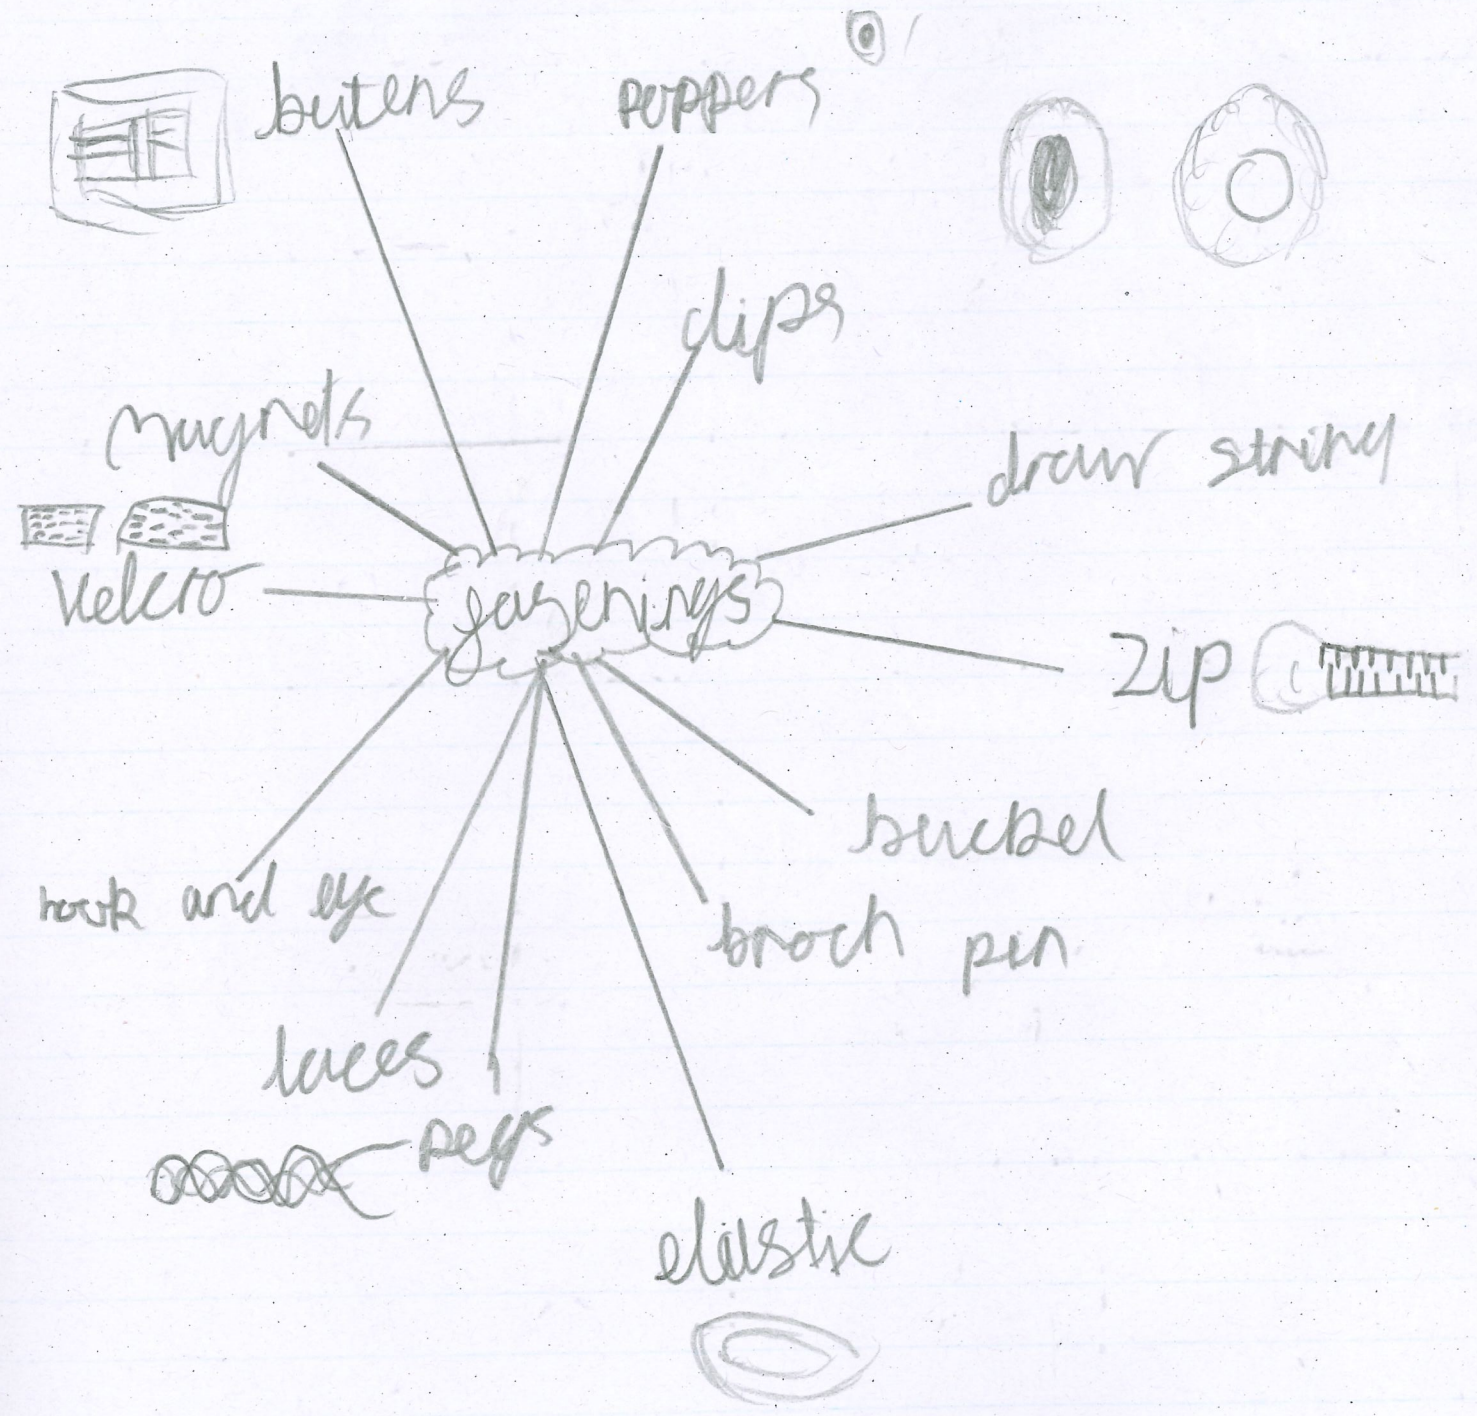 butens
poppers
clips
magnets
draw string
velcro
fasenings
zip
buckel
hook and eye
broch pin
laces
pegs
elastic